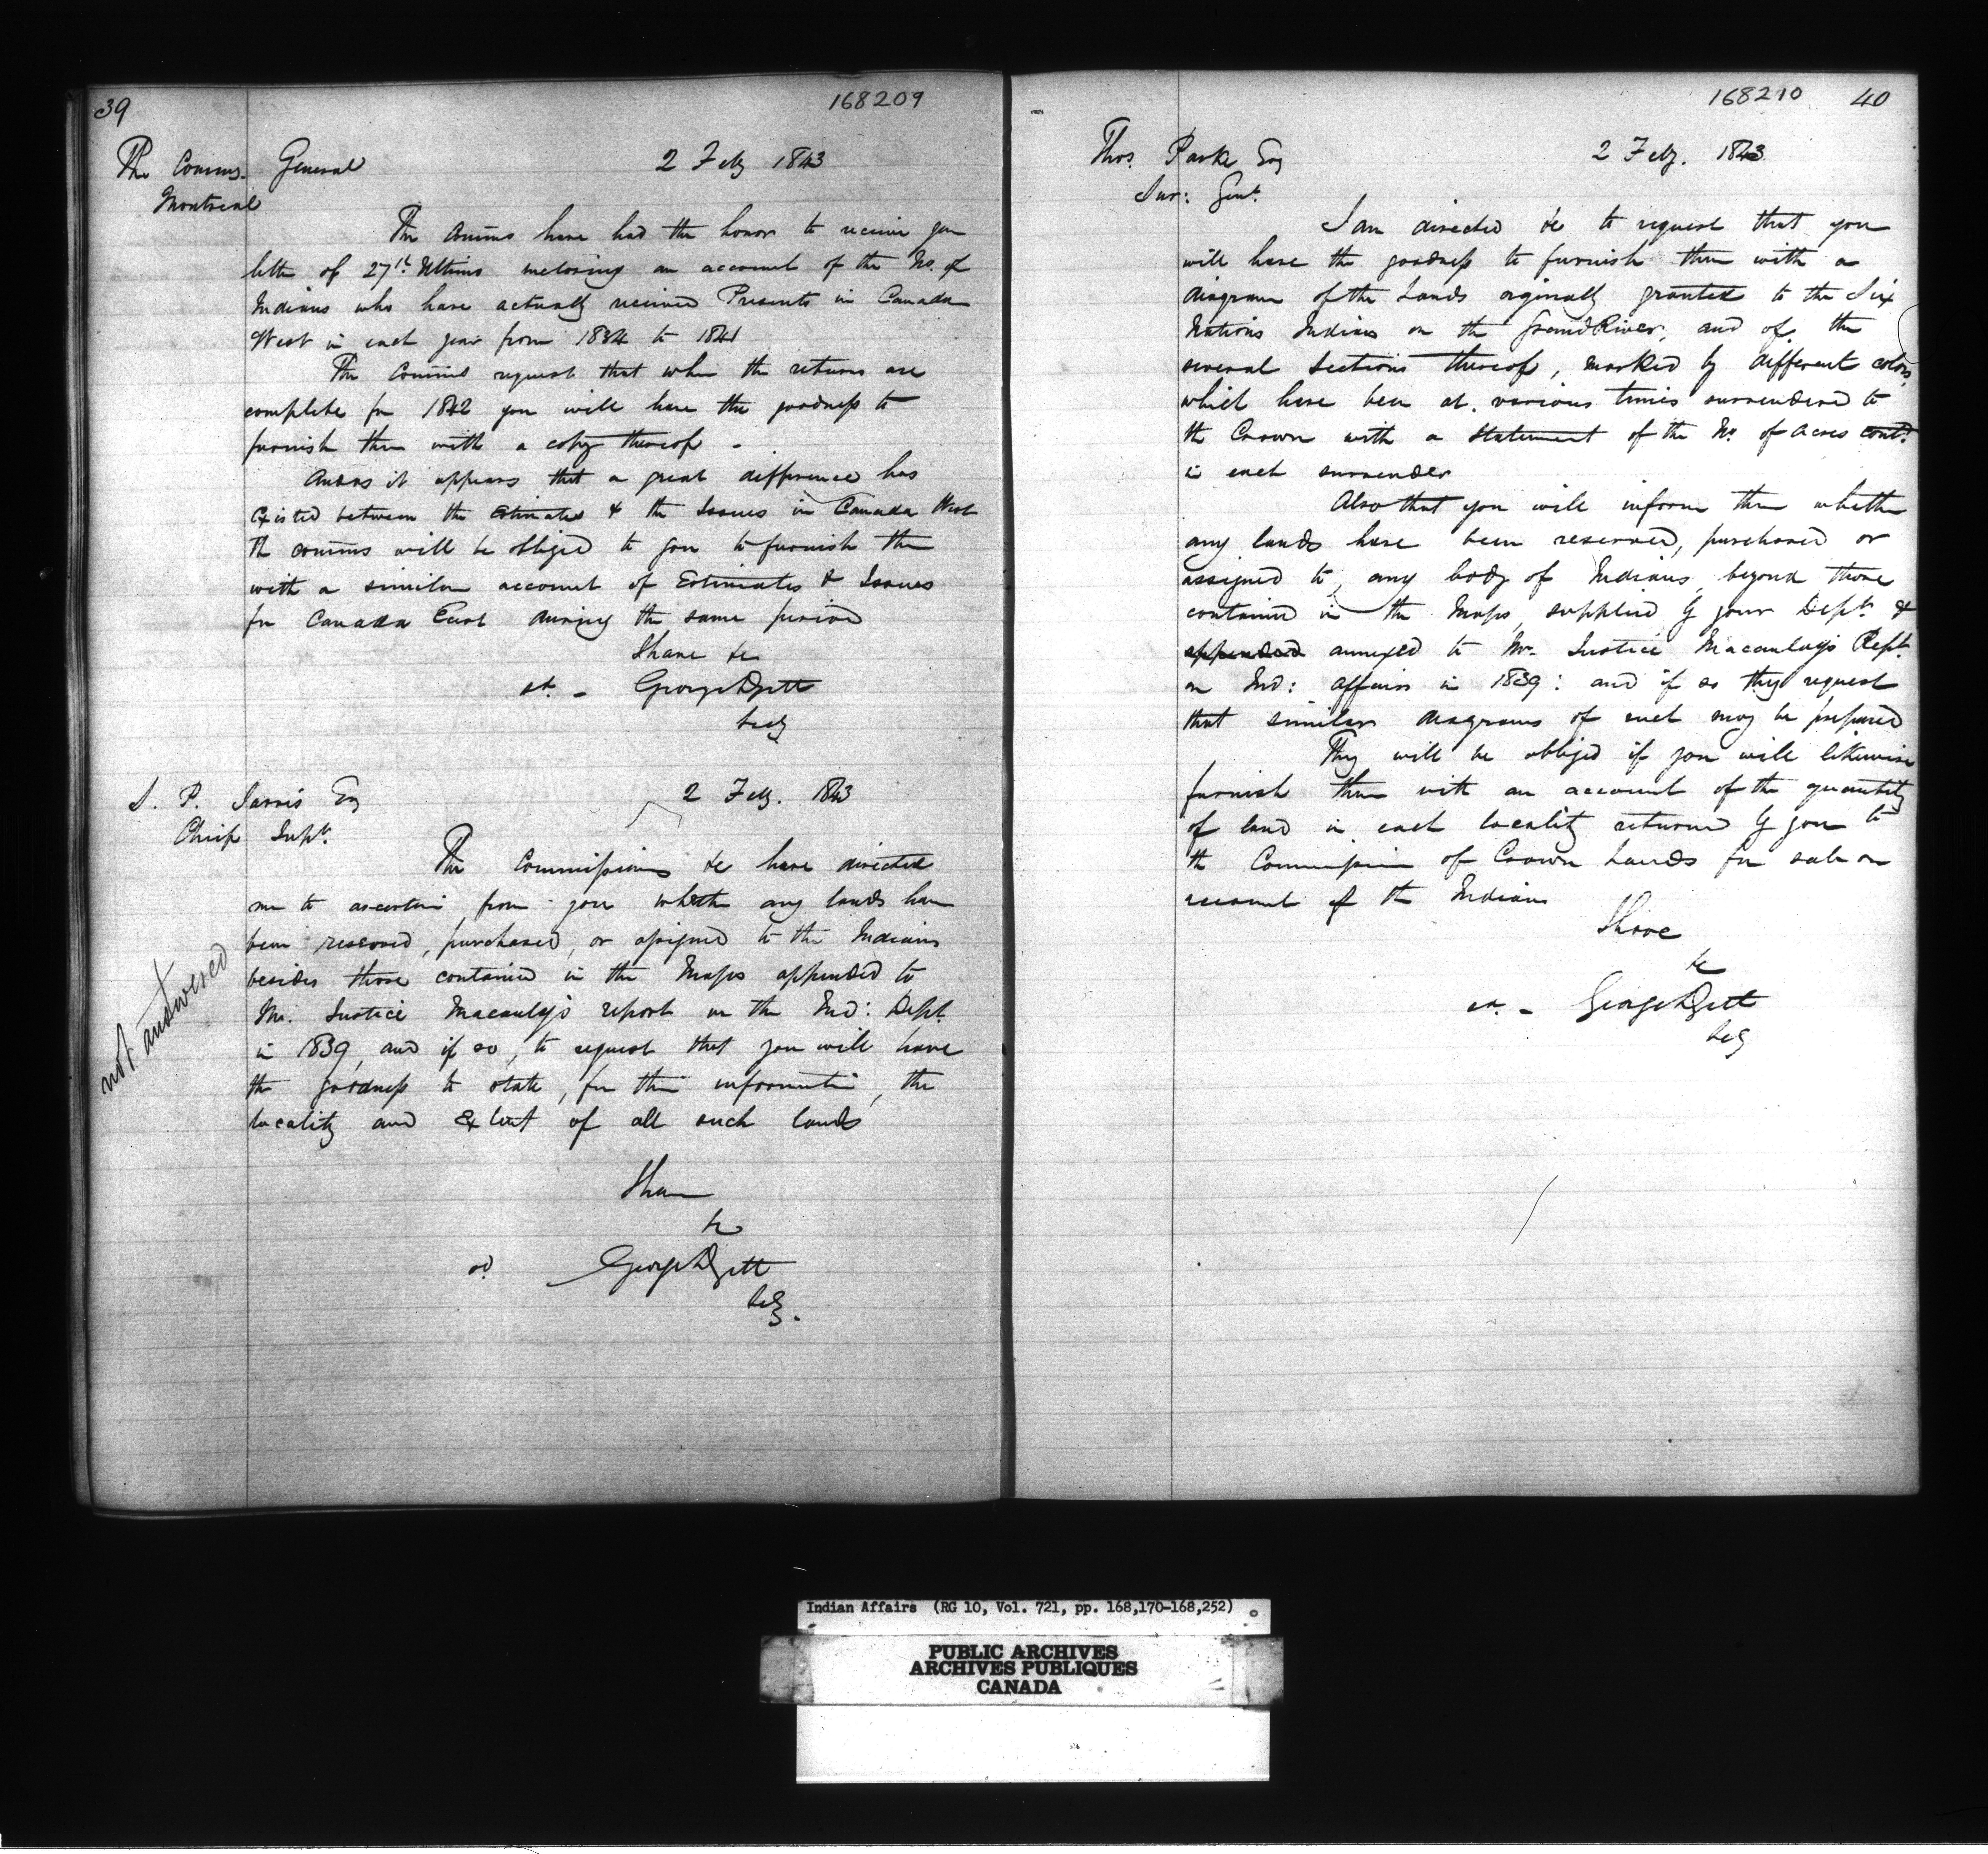 39
168209
The Comms. General 2 Feby 1843
Montreal
The Comms have had the honor to receive your
letter of 27th Ultimo inclosing an account of the No. of
Indians who have actually received Presents in Canada
West in each year from 1834 to 1841
The Comms request that when the returns are
complete for 1842 you will have the goodness to
furnish them with a copy thereof -
And as it appears that a great difference has
existed between the Estimates & the Issues in Canada West
The comms will be obliged to you to furnish them
with a similar account of Estimates & Issues
for Canada East during the same period
I have &c
George
Secy
S. P. Jarvis Esq 2 Feby. 1843
Chief Supt.
The Commissioners &c have directed
me to ascertain from you whether any lands have
been reserved, purchased, or assigned to the Indians
besides those contained in the Maps appended to
Mr. Justice Macaulay's report on the Ind: Dept.
in 1839, and if so, to request that you will have
the goodness to state, for their information, the
locality and extent of all such lands
not answered
I have
&c
George
Secy.
168210 40
Thos. Parke Esq 2 Feby. 1843
Sur: Genl.
I am directed &c to request that you
will have the goodness to furnish them with a
diagram of the Lands orginally granted to the Six
Nations Indians on the Grand River, and of the
several Sections thereof, marked by different colors,
which have been at various times surrendered to
the Crown with a Statement of the No. of Acres contd.
in each surrender
Also that you will inform them whether
any lands have been reserved, purchased or
assigned to, any body of Indians, beyond those
contained in the Maps supplied by your Dept. &
appended annexed to Mr. Justice Macaulay's Rept.
on Ind: affairs in 1839: and if so they request
that similar diagrams of such may be prepared
They will be obliged if you will likewise
furnish them with an account of the quantity
of land in each locality returned by you to
the Commissioner of Crown Lands for sale on
account of the Indians
I have
&c
George
Secy
Indian Affairs (RG 10, Vol. 721, pp. 168,170-168,252)
PUBLIC ARCHIVES
ARCHIVES PUBLIQUES
CANADA